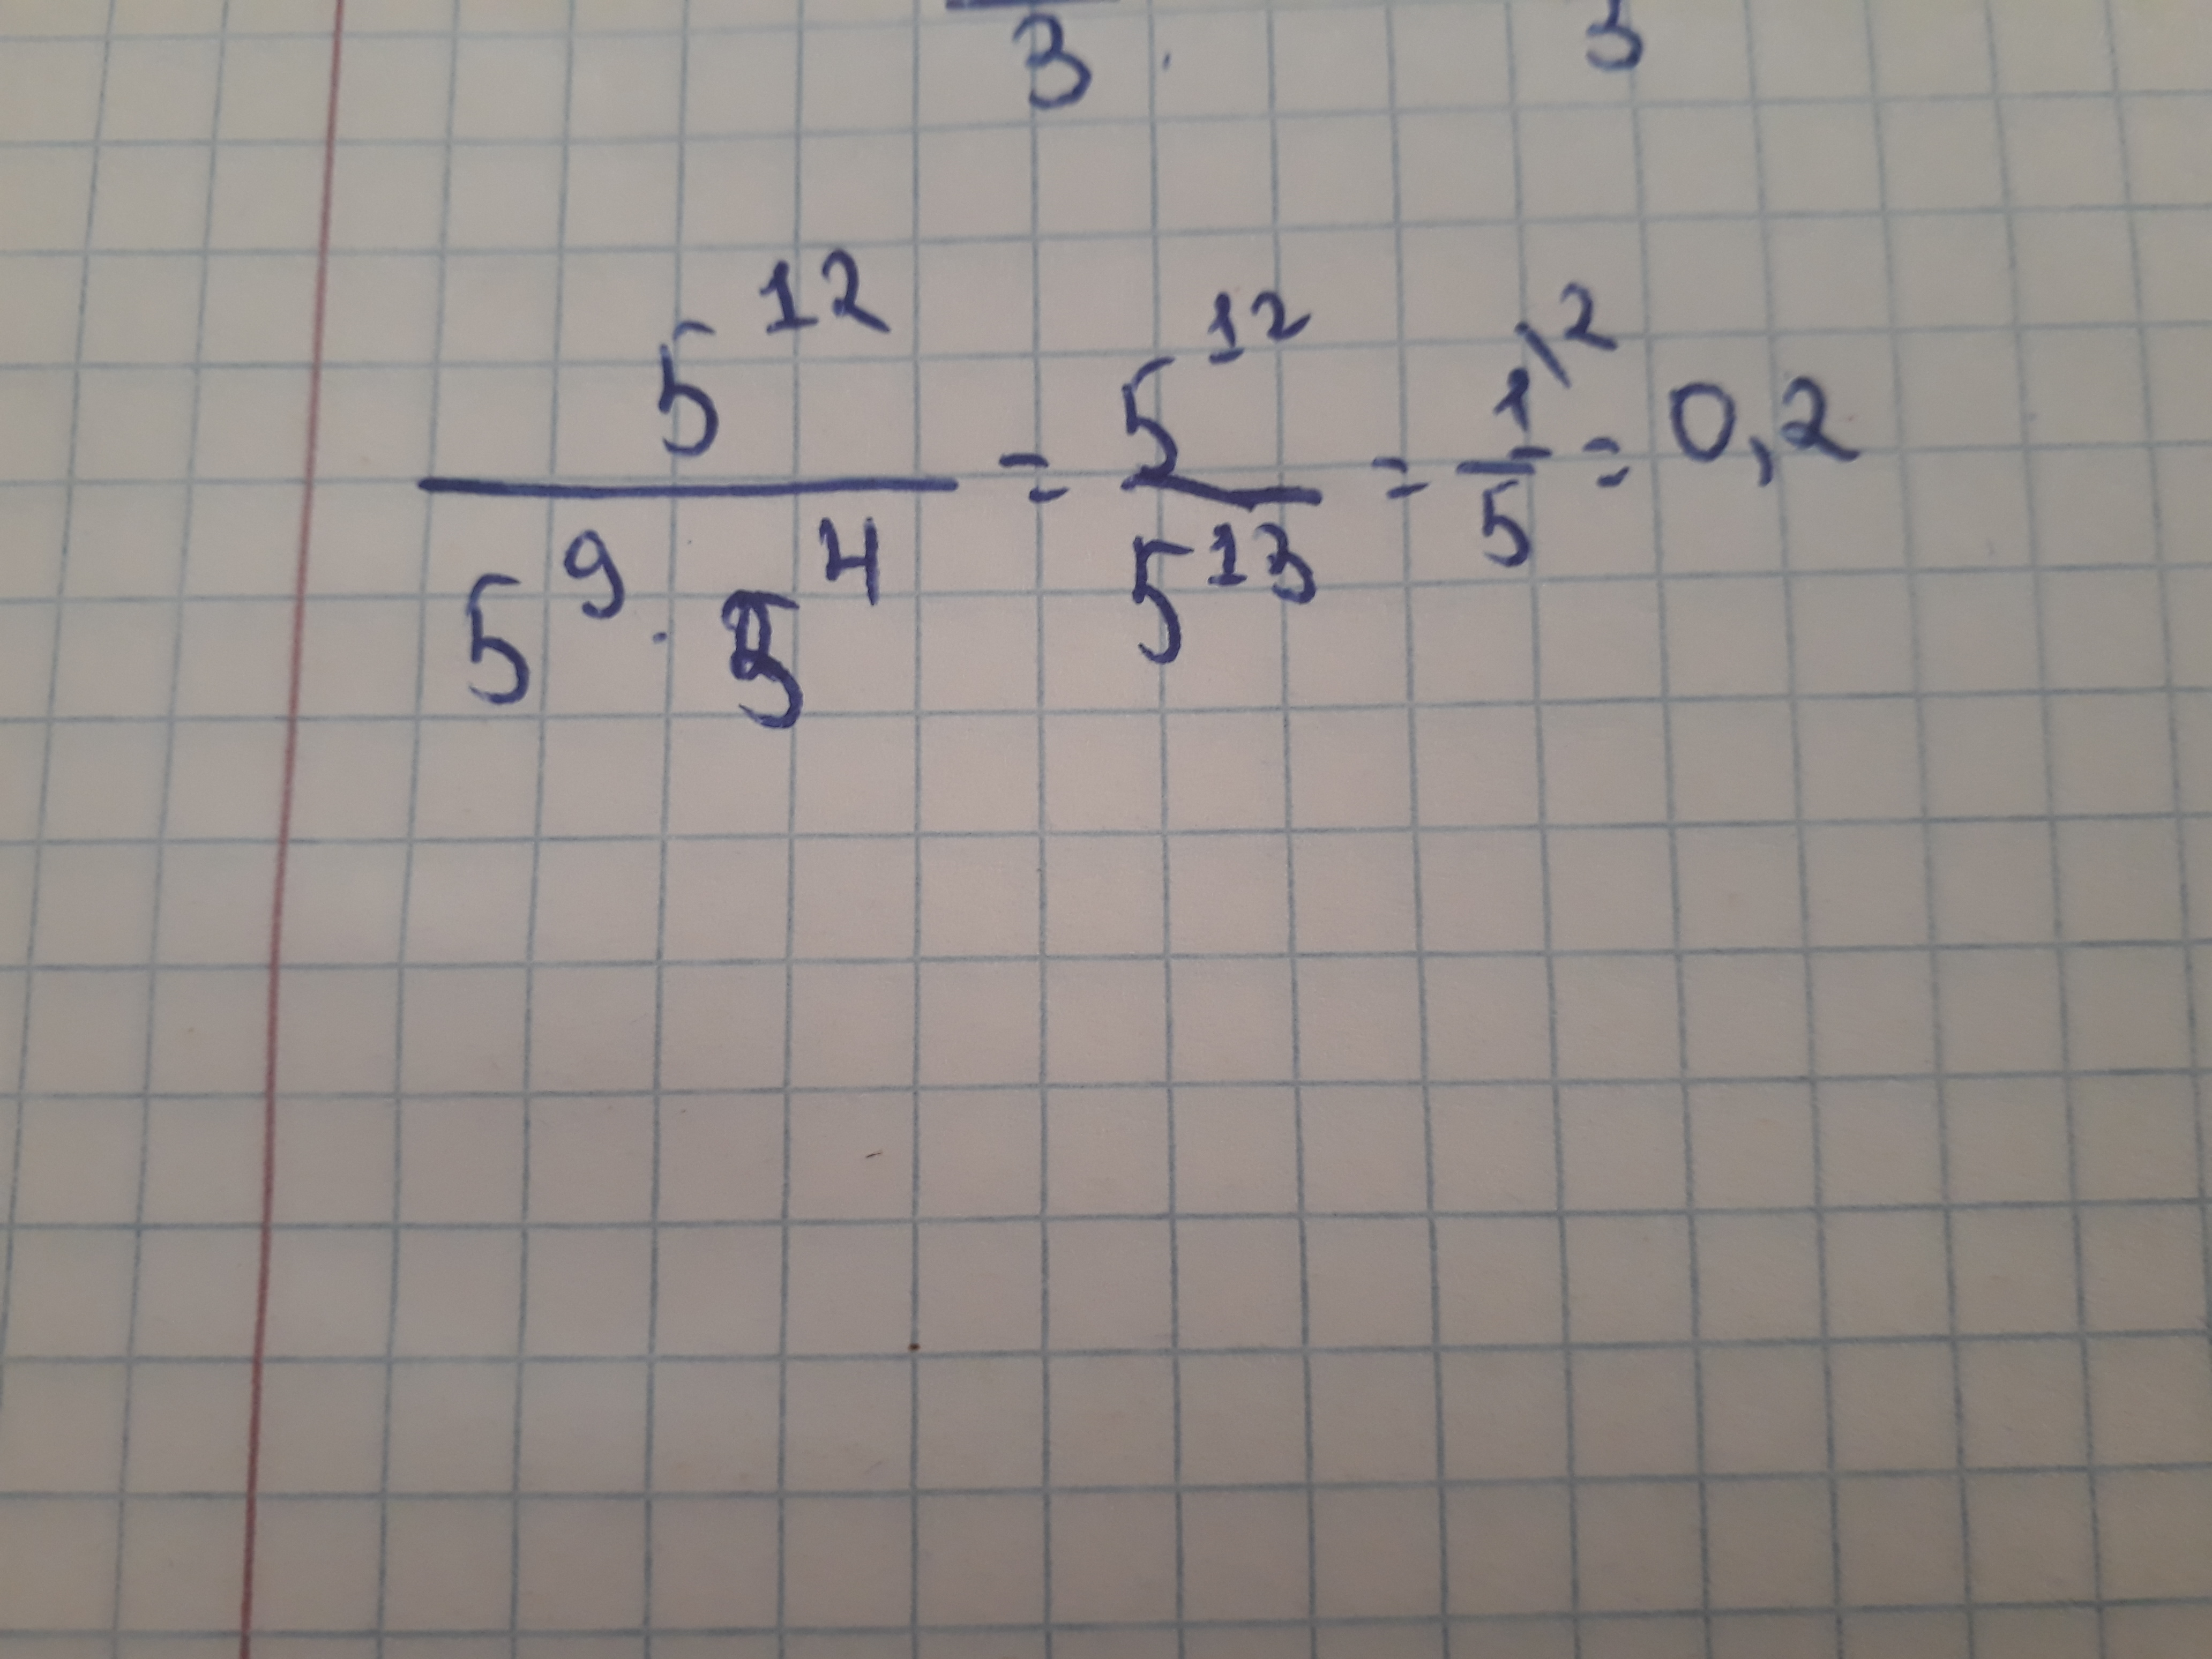 3 · 3
5¹² / 5⁹ · 5⁴ = 5¹² / 5¹³ = 1\² / 5 = 0,2